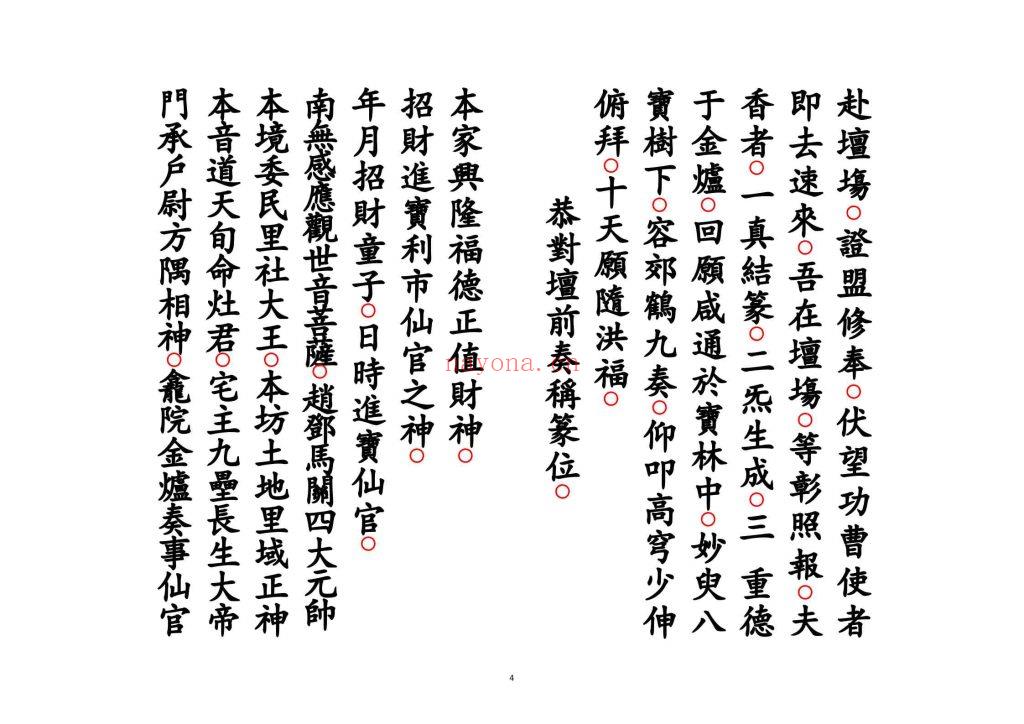 赴壇塲○證盟修奉○伏望功曹使者
即去速來○吾在壇塲○等彰照報○夫
香者○一真結篆○二炁生成○三重德
于金爐○回願咸通於寶林中○妙臾八
寶樹下○容郊鶴九奏○仰叩高穹少伸
俯拜○十天願隨洪福○
恭對壇前奏稱篆位○
本家興隆福德正值財神○
招財進寶利市仙官之神○
年月招財童子○日時進寶仙官○
南無感應觀世音菩薩○趙鄧馬關四大元帥
本境委民里社大王○本坊土地里域正神
本音道天旬命灶君○宅主九壘長生大帝
門承戶尉方隅相神○龕院金爐奏事仙官
nayona.cn
4